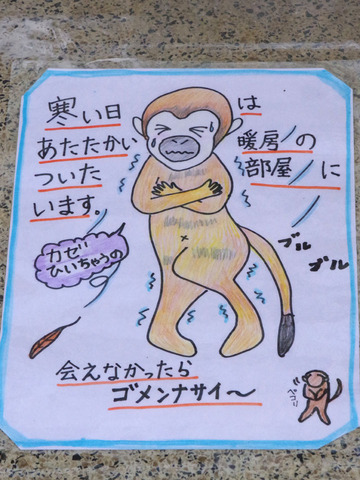 寒い日は
あたたかい暖房の
ついた部屋に
います。
カゼ
ひいちゃうの
ブル
ブル
会えなかったら
ゴメンナサイ〜
ペコリ